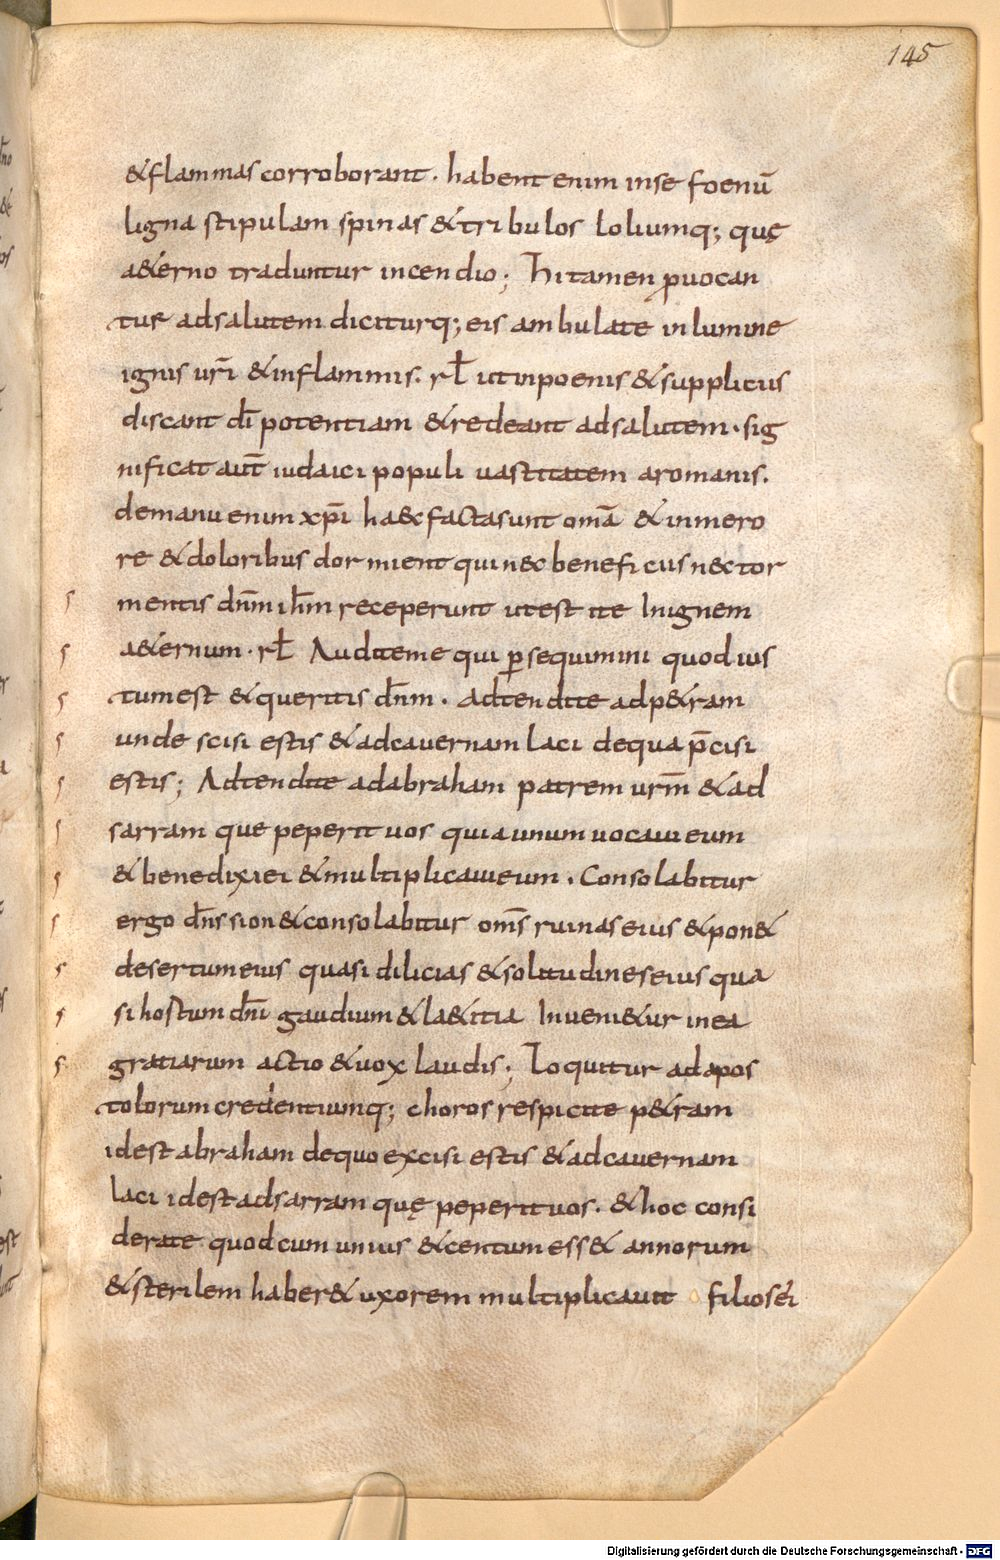 145
&flammas corroborant. habent enim inse foenū
ligna stipulam spinas &tribulos loliumq; quę
a&erno traduntur incendio; Hi tamen ꝓuocan
tur adsalutem diciturq; eis ambulate inlumine
ignis ur̄i &inflammis. rł ut inpoenis &suppliciis
discant dī potentiam &redeant adsalutem. sig
nificat aut̄ iudaici populi uastitatem aromanis.
demanu enim xp̄i haec factasunt omā &inmero
re &doloribus dormient qui nec beneficiis nec tor
mentis dn̄m ih̄m receperunt utest ite Inignem
a&ernum. rł Auditeme qui ꝑsequimini quod ius
tumest &queritis dn̄m. Adtendite adp&ram
unde scisi estis &adcauernam laci dequa p̄cisi
estis; Adtendite adabraham patrem urm̄ &ad
sarram que peperit uos quia unum uocaui eum
& benedixi ei &multiplicaui eum. Consolabitur
ergo dn̄s sion &consolabitur om̄s ruinas eius &pon&
desertum eius quasi dilicias &solitudines eius qua
si hostum dn̄i gaudium &la&itia Inueni&ur inea
gratiarum actio &uox laudis; Loquitur adapos
tolorum credentiumq; choros respicite p&ram
idest abraham dequo excisi estis &adcauernam
laci idest adsarram quę peperit uos. &hoc consi
derate quodcum unius &centum ess& annorum
&sterilem haber& uxorem multiplicauit filios ei
Digitalisierung gefördert durch die Deutsche Forschungsgemeinschaft - DFG